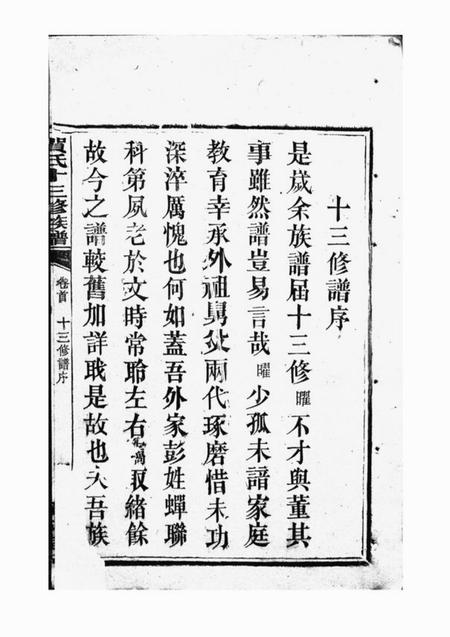 十三修譜序
是歲余族譜屆十三修曜不才與董其
事雖然譜豈易言哉曜少孤未諳家庭
教育幸承外祖舅父兩代琢磨惜未功
深淬厲愧也何如蓋吾外家彭姓蟬聯
科第夙老於文時常聆左右餘
故今之譜較舊加詳職是故也吾族
氏十三修族譜
卷首
十三修譜序